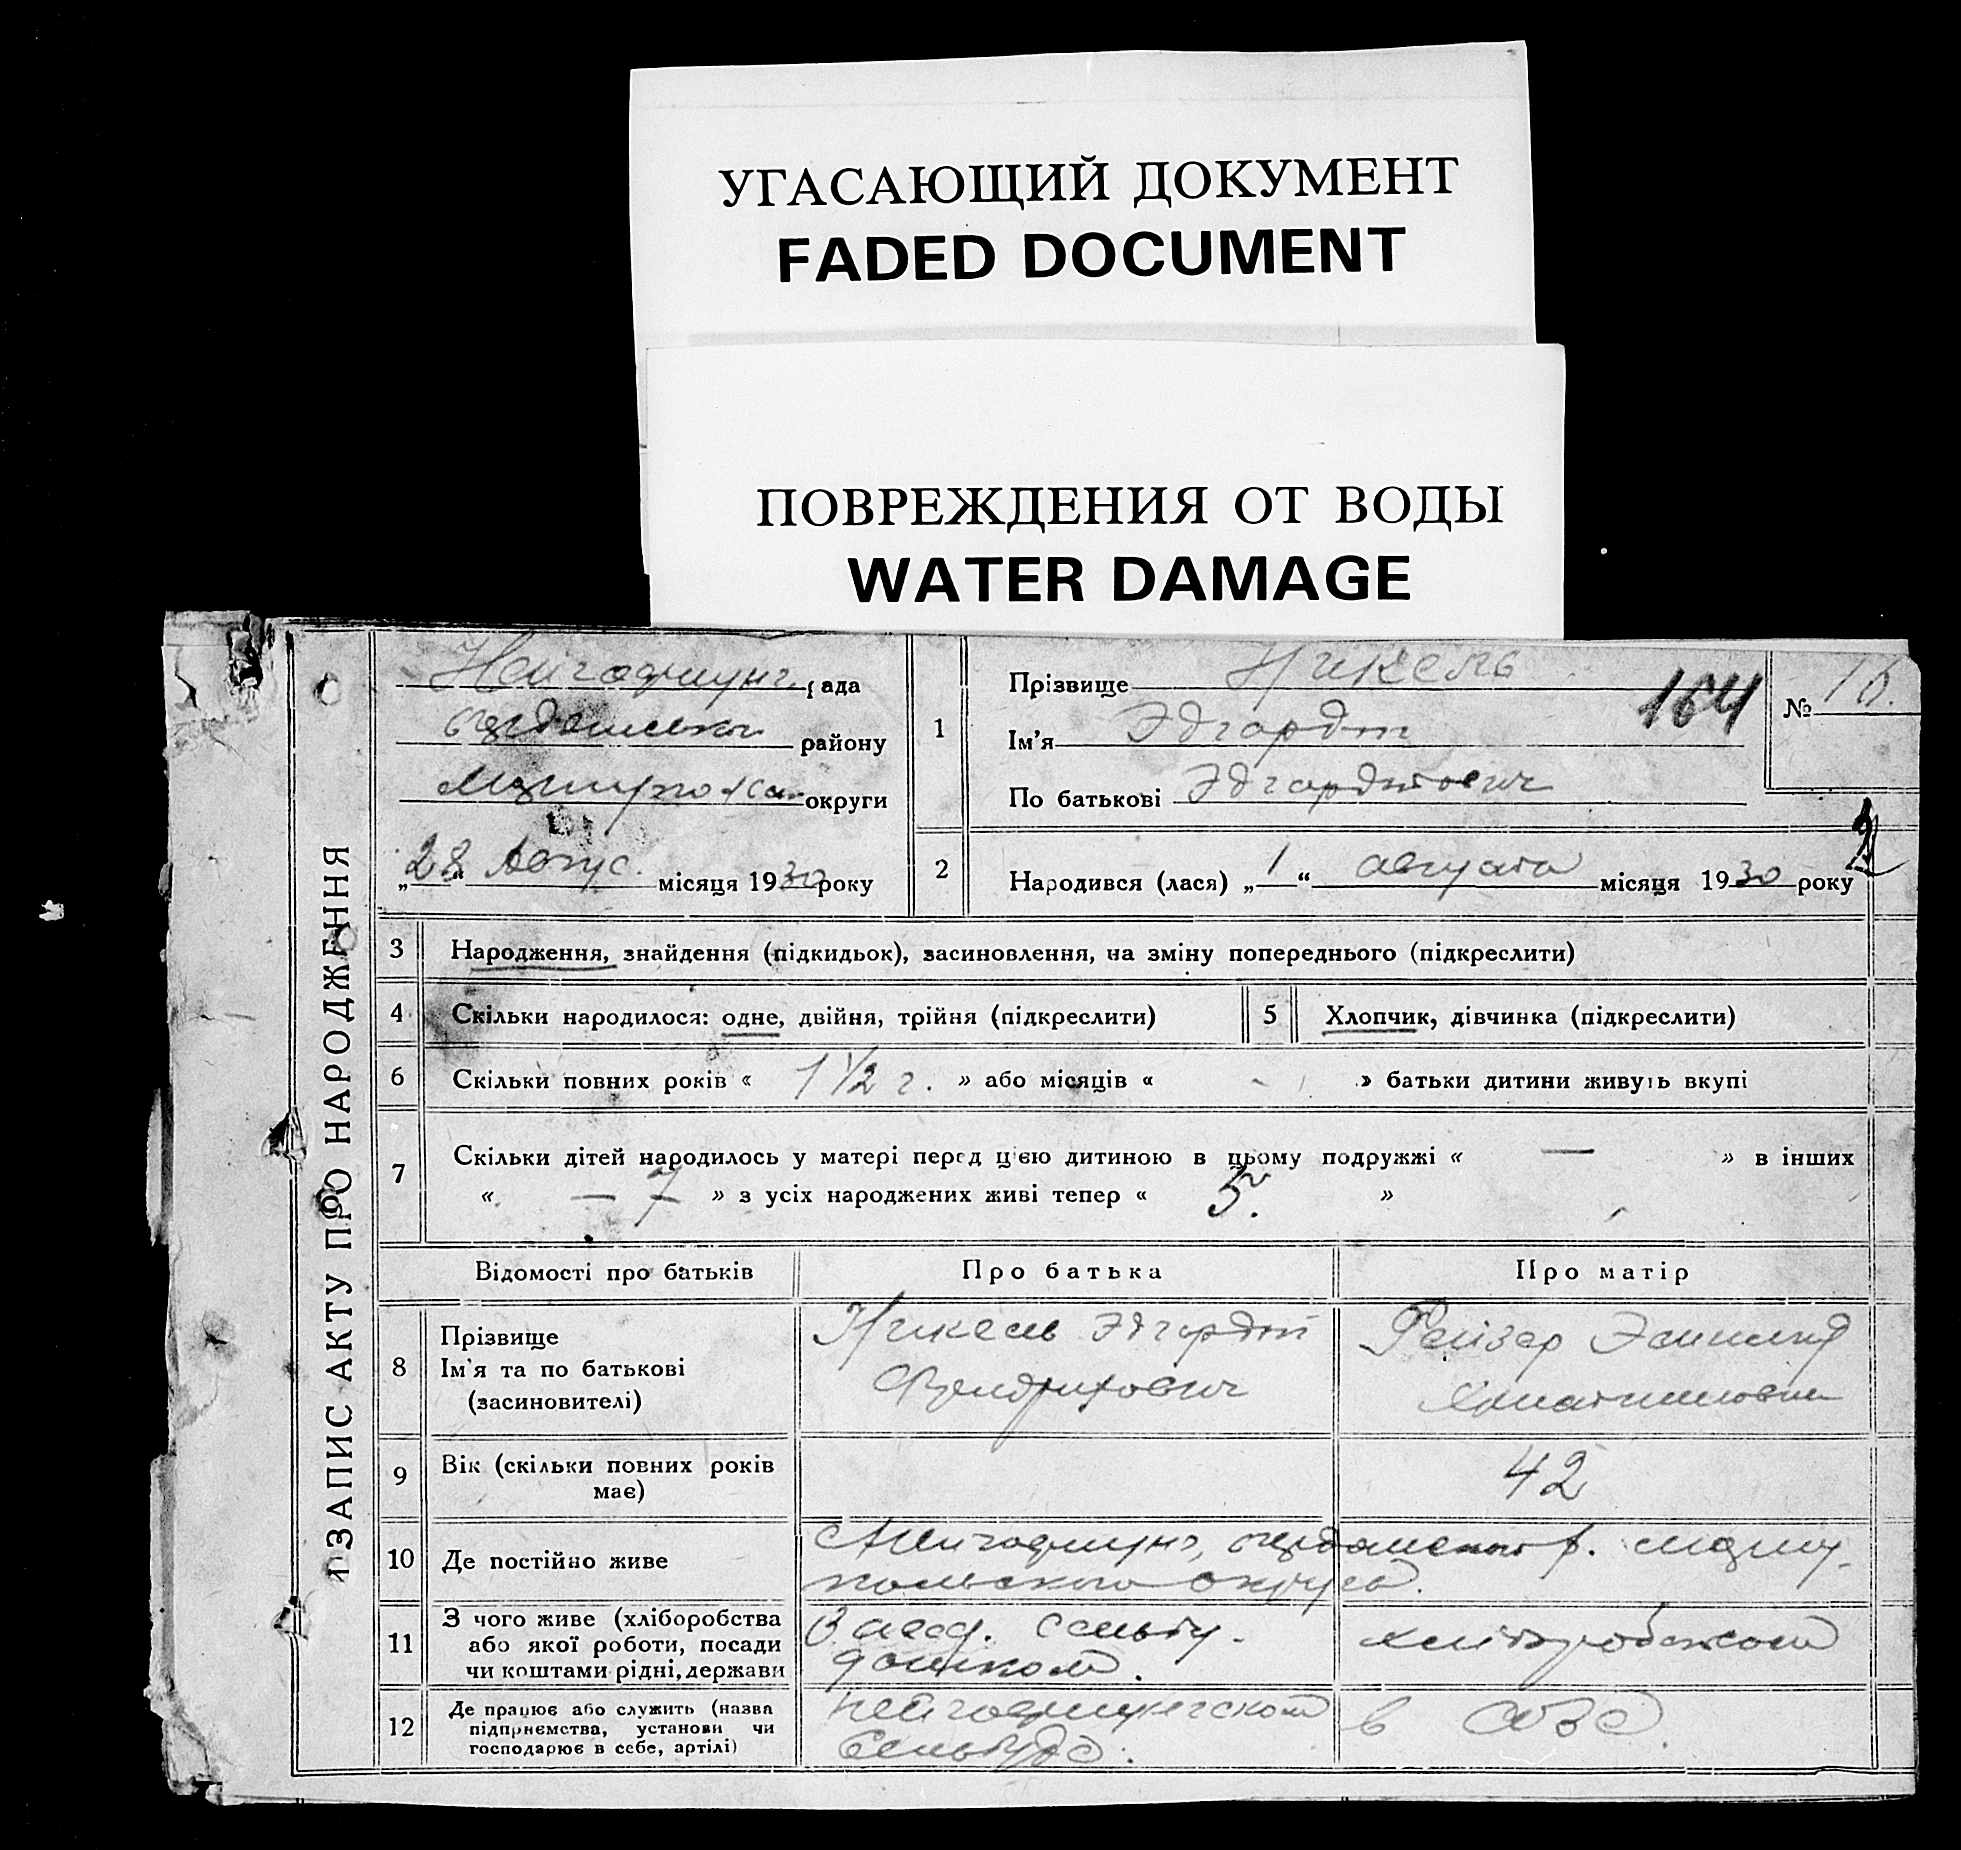 УГАСАЮЩИЙ ДОКУМЕНТ
FADED DOCUMENT
ПОВРЕЖДЕНИЯ ОТ ВОДЫ
WATER DAMAGE
ЗАПИС АКТУ ПРО НАРОДЖЕННЯ
рада
району
округи
„28“ Август. місяця 1930 року
1
Прізвище Никель
Ім'я Эдгардт
По батькові Эдгардтович
164
№ 16.
2
Народився (лася) „1“ августа місяця 1930 року
3 Народження, знайдення (підкидьок), засиновлення, на зміну попереднього (підкреслити)
4 Скільки народилося: одне, двійня, трійня (підкреслити)
5 Хлопчик, дівчинка (підкреслити)
6 Скільки повних років « 1 1/2 г. » або місяців « - » батьки дитини живуть вкупі
7 Скільки дітей народилось у матері перед цією дитиною в цьому подружжі « — » в інших
« — 7 » з усіх народжених живі тепер « 5. »
Відомості про батьків
Про батька
Про матір
8
Прізвище
Ім'я та по батькові
(засиновителі)
Никель Эдгардт
Рейзер
9
Вік (скільки повних років
має)
42
10 Де постійно живе
округа.
11
З чого живе (хліборобства
або якої роботи, посади
чи коштами рідні, держави
12
Де працює або служить (назва
підприємства, установи чи
господарює в себе, артілі)
в СОЗе